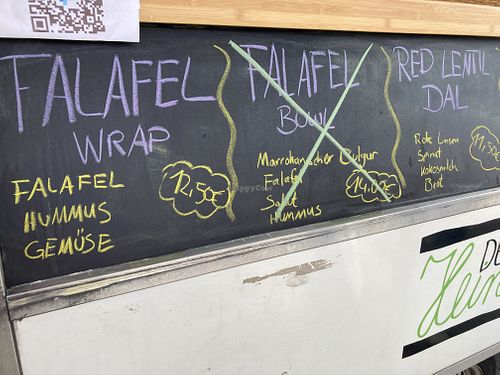 FALAFEL
WRAP
FALAFEL
HUMMUS
GEMÜSE
12,50€
FALAFEL
BOWL
Marrokanischer Bulgur
Falafel
Salat
HUMMUS
14,00€
RED LENTIL
DAL
Rote Linsen
Spinat
Kokosmilch
Brot
11,50€
DE